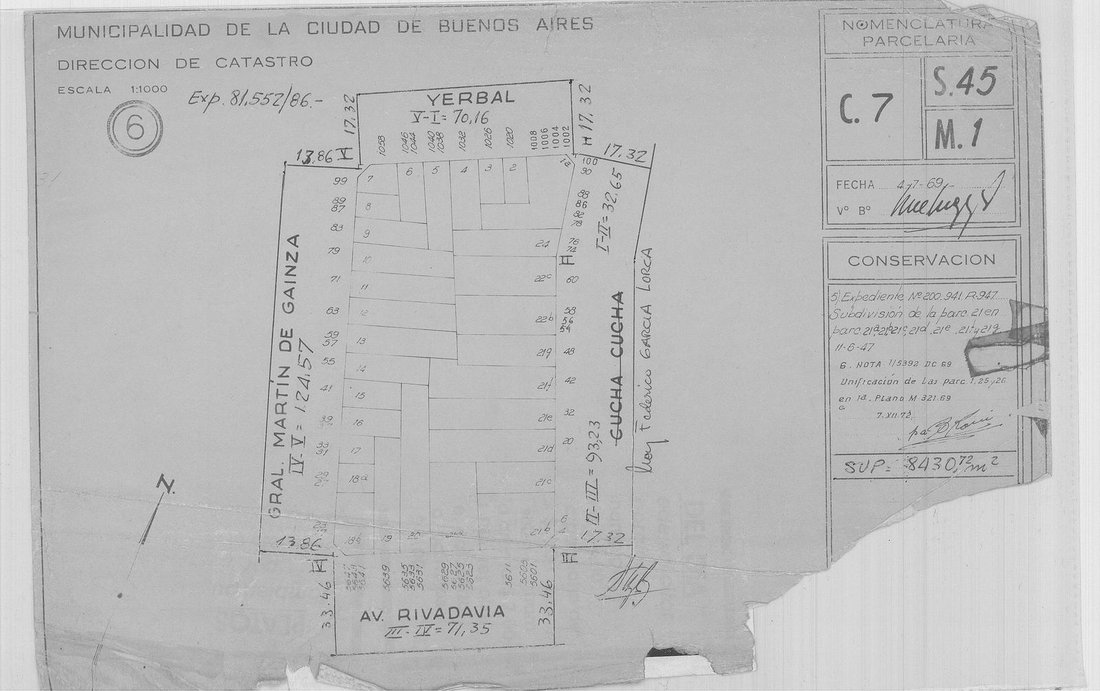 MUNICIPALIDAD DE LA CIUDAD DE BUENOS AIRES
DIRECCION DE CATASTRO
ESCALA 1:1000
Exp. 81,552/86.-
6
NOMENCLATURA
PARCELARIA
C. 7
S. 45
M. 1
FECHA 4-7-69
Vº Bº
CONSERVACION
5 Expediente Nº 200.941-R-947
Subdivisión de la parc 21 en
11-6-47
6. NOTA 1/5392 DC 69
Unificación de las parc 1, 25 y 26
en 1a. Plano M 321.69
7.XII.72
SUP= 8430,72 m2
YERBAL
V-I= 70,16
17.32
17.32
13.86 V
17.32
1058
1046
1044
1040
1038
1032
1026
1020
1008
1006
1004
1002
100
7
6
5
4
3
2
99
89
87
83
79
71
63
59
57
55
41
8
9
10
11
12
13
14
15
16
17
18a
18b
19
20
24
22c
22b
21g
21f
21e
21d
21c
21b
98
88
86
82
78
76
72
60
58
56
54
48
42
32
20
6
4
GRAL. MARTÍN DE GAINZA
IV-V= 124.57
I-II= 32,65
CUCHA CUCHA
II-III= 93,23
Hoy Federico GARCÍA LORCA
N.
13.86
17.32
IV
III
33.46
33.46
5639
5635
5633
5631
5629
5627
5625
5623
5611
5603
5601
AV. RIVADAVIA
III-IV= 71,35